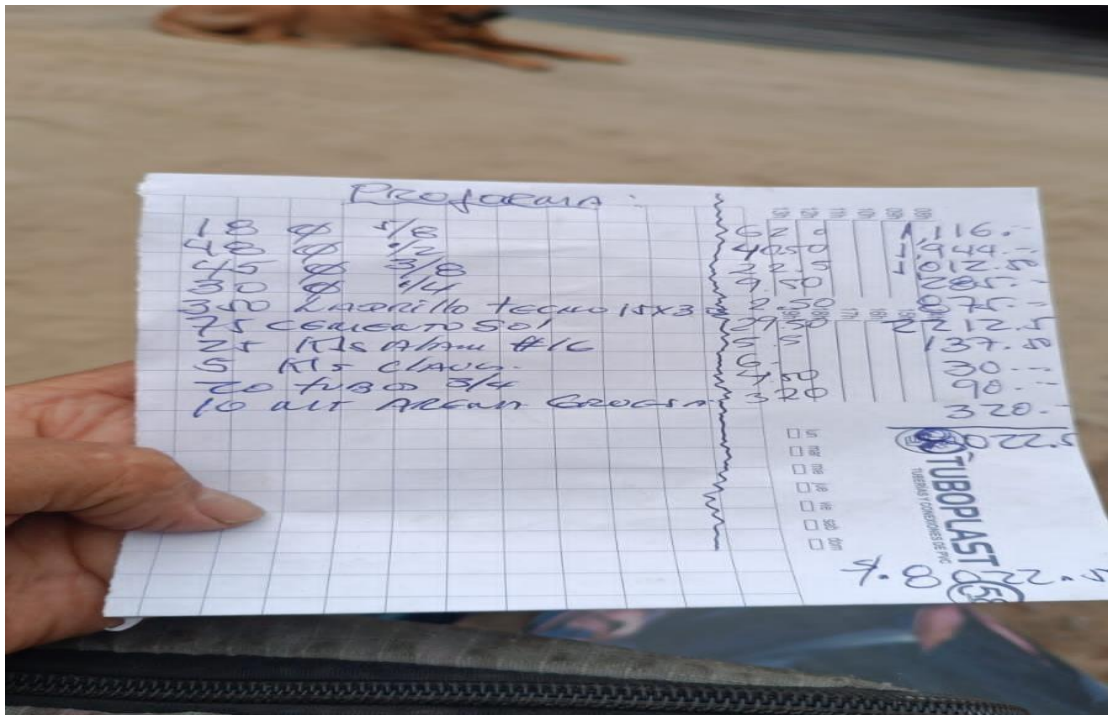 PROFORMA:
18 Ø 5/8 62.- 1,116.--
48 Ø 1/2 40.50 1,944.--
45 Ø 3/8 22.5 1,012.50
30 Ø 1/4 9.50 285.--
350 Ladrillo tecno 15x30 2.50 875.--
75 CEMENTO SOL 29.50 2212.5
25 Kls Alam #16 5.5 137.50
5 Kls CLAVO.- 6.- 30.--
20 tubo 3/4 4.50 90.--
10 ARENA GRUESA. 320 320.--
8022.5
TUBOPLAST
TUBERIAS Y CONEXIONES DE PVC
mar
mie
jue
vie
sab
dom